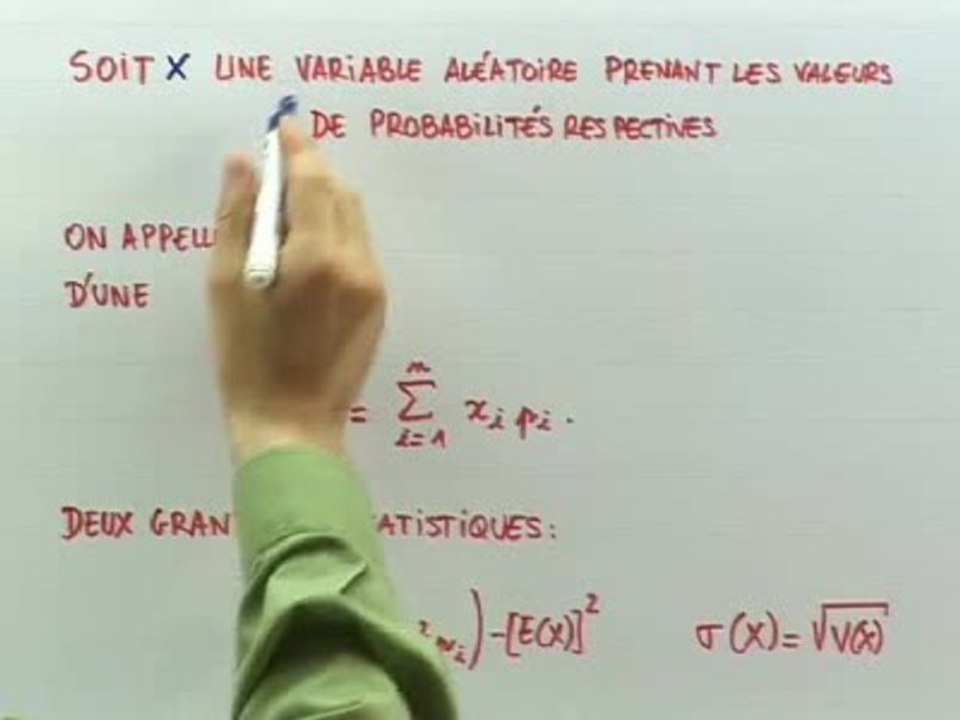 SOIT X UNE VARIABLE ALÉATOIRE PRENANT LES VALEURS
DE PROBABILITÉS RESPECTIVES
ON APPELL
D'UNE
= ∑ⁿᵢ₌₁ xᵢ pᵢ .
DEUX GRAN ATISTIQUES :
) - [E(X)]² σ(X) = √V(X)